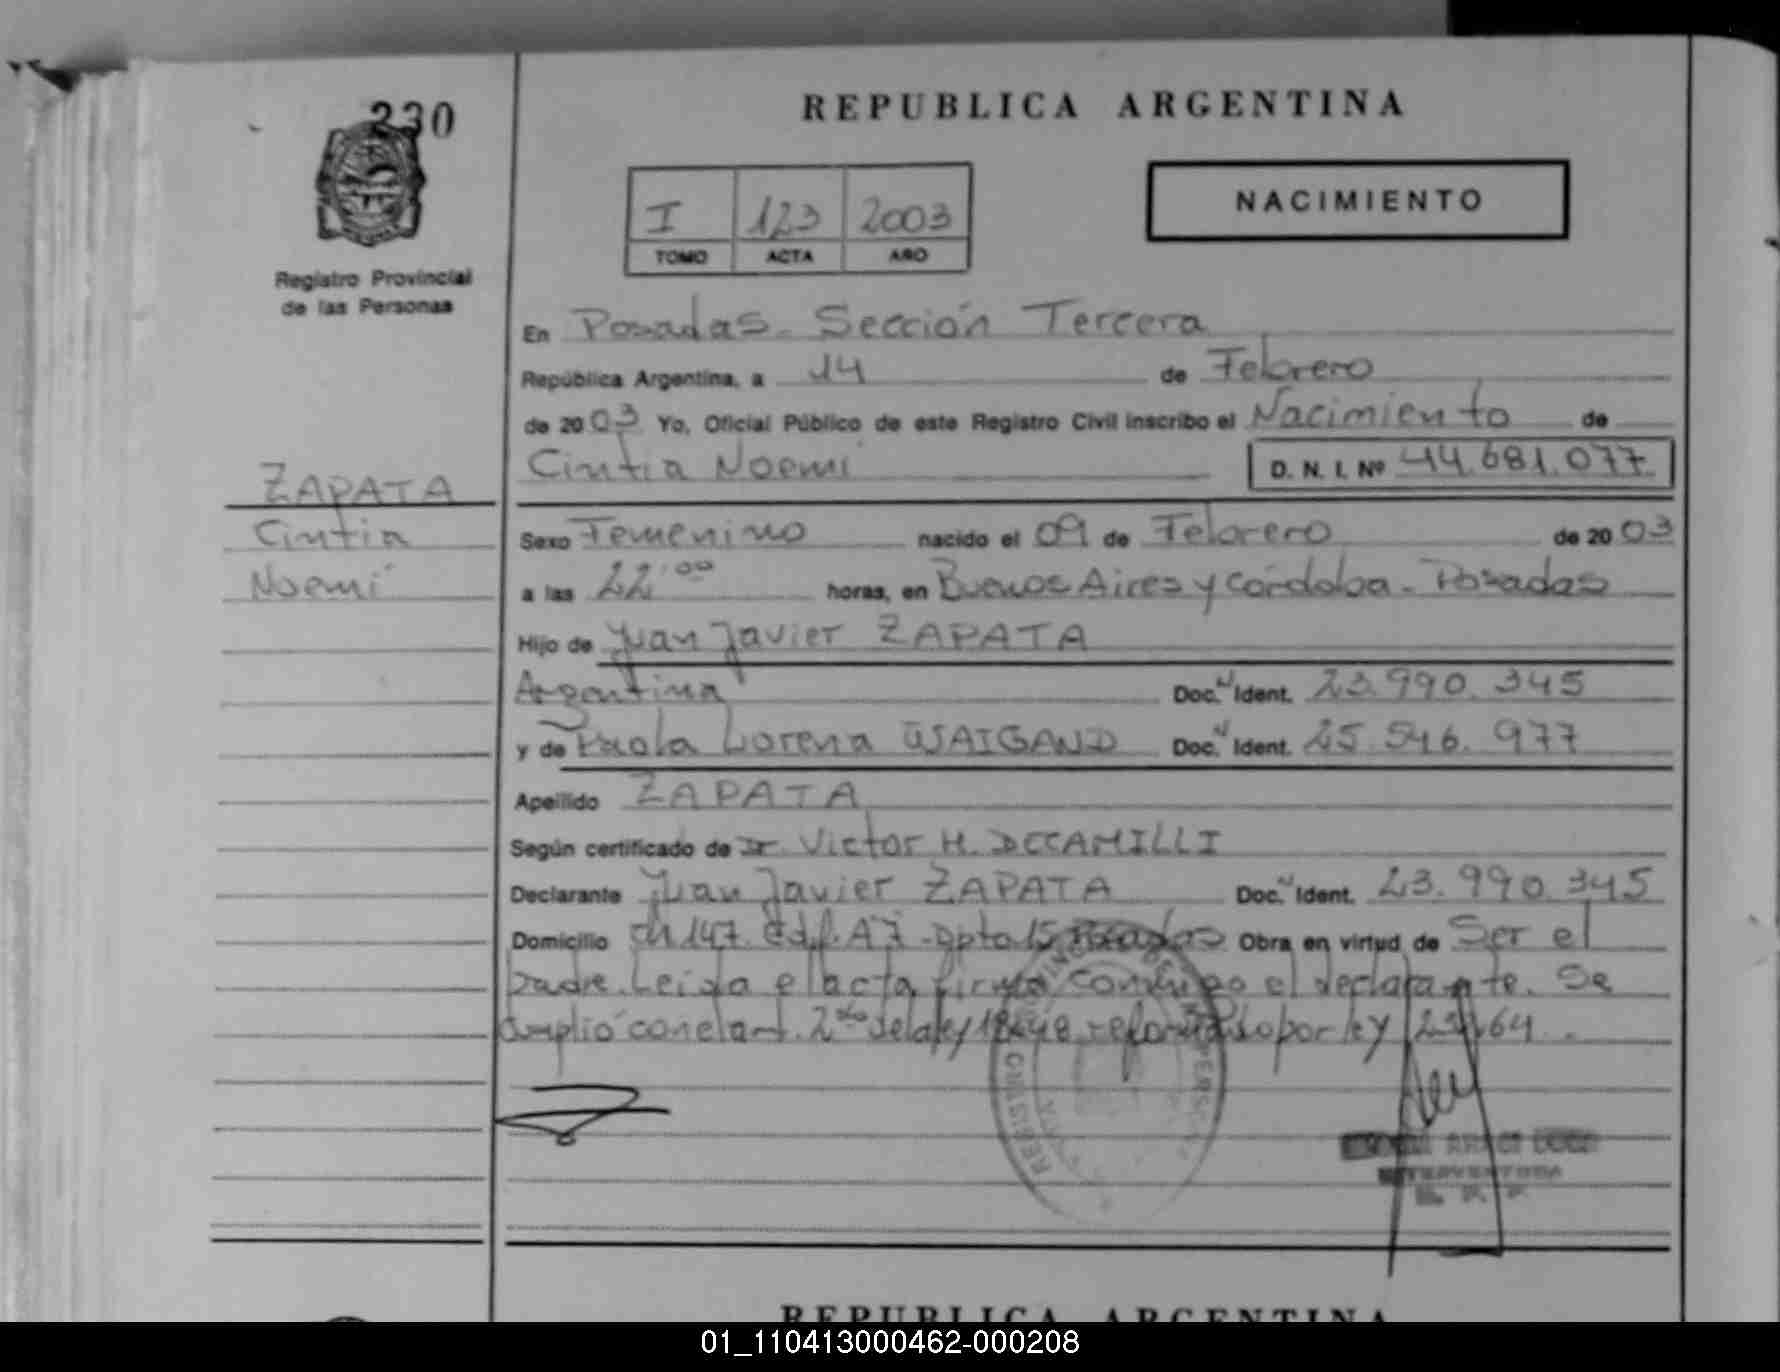 230
REPUBLICA ARGENTINA
NACIMIENTO
I 123 2003
TOMO ACTA AÑO
Registro Provincial
de las Personas
En Posadas - Sección Tercera
República Argentina, a 14 de Febrero
de 2003 Yo, Oficial Público de este Registro Civil inscribo el Nacimiento de
Cintia Noemí D. N. I. Nº 44.681.077
ZAPATA
Cintia
Noemí
Sexo Femenino nacido el 09 de Febrero de 2003
a las 22:00 horas, en Buenos Aires y Córdoba - Posadas
Hijo de Juan Javier ZAPATA
Argentina Doc. Ident. 23.990.345
y de Paola Lorena WAIGAND Doc. Ident. 25.546.977
Apellido ZAPATA
Según certificado de Dr. Victor H. DECAMILLI
Declarante Juan Javier ZAPATA Doc. Ident. 23.990.345
Domicilio Ch 147. Edif. A7 - Dpto 15 Posadas Obra en virtud de Ser el
padre. Leida el acta firma conmigo el declarante. Se
amplió con el art. 2do de la ley 18248 reformado por ley
REPUBLICA ARGENTINA
01_110413000462-000208